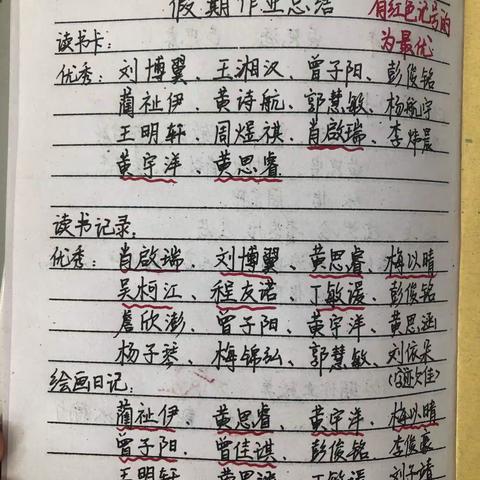 假期作业总结
有红色记号的
为最优
读书卡:
优秀:刘博翼、王湘汉、曾子阳、彭俊铭
蔺祉伊、黄诗航、郭慧敏、杨航宇
王明轩、周煜祺、肖啟瑞、李烨晨
黄宇洋、黄思睿
读书记录:
优秀:肖啟瑞、刘博翼、黄思睿、梅以晴
吴柯江、程友诺、丁敏湲、彭俊铭
詹欣澎、曾子阳、黄宇洋、黄思涵
杨子、梅锦弘、郭慧敏、刘依朵
(字迹欠佳)
绘画日记:
蔺祉伊、黄思睿、黄宇洋、梅以晴
曾子阳、曾佳淇、彭俊铭、李俊豪
王明轩、黄思涵、丁敏湲、刘子靖